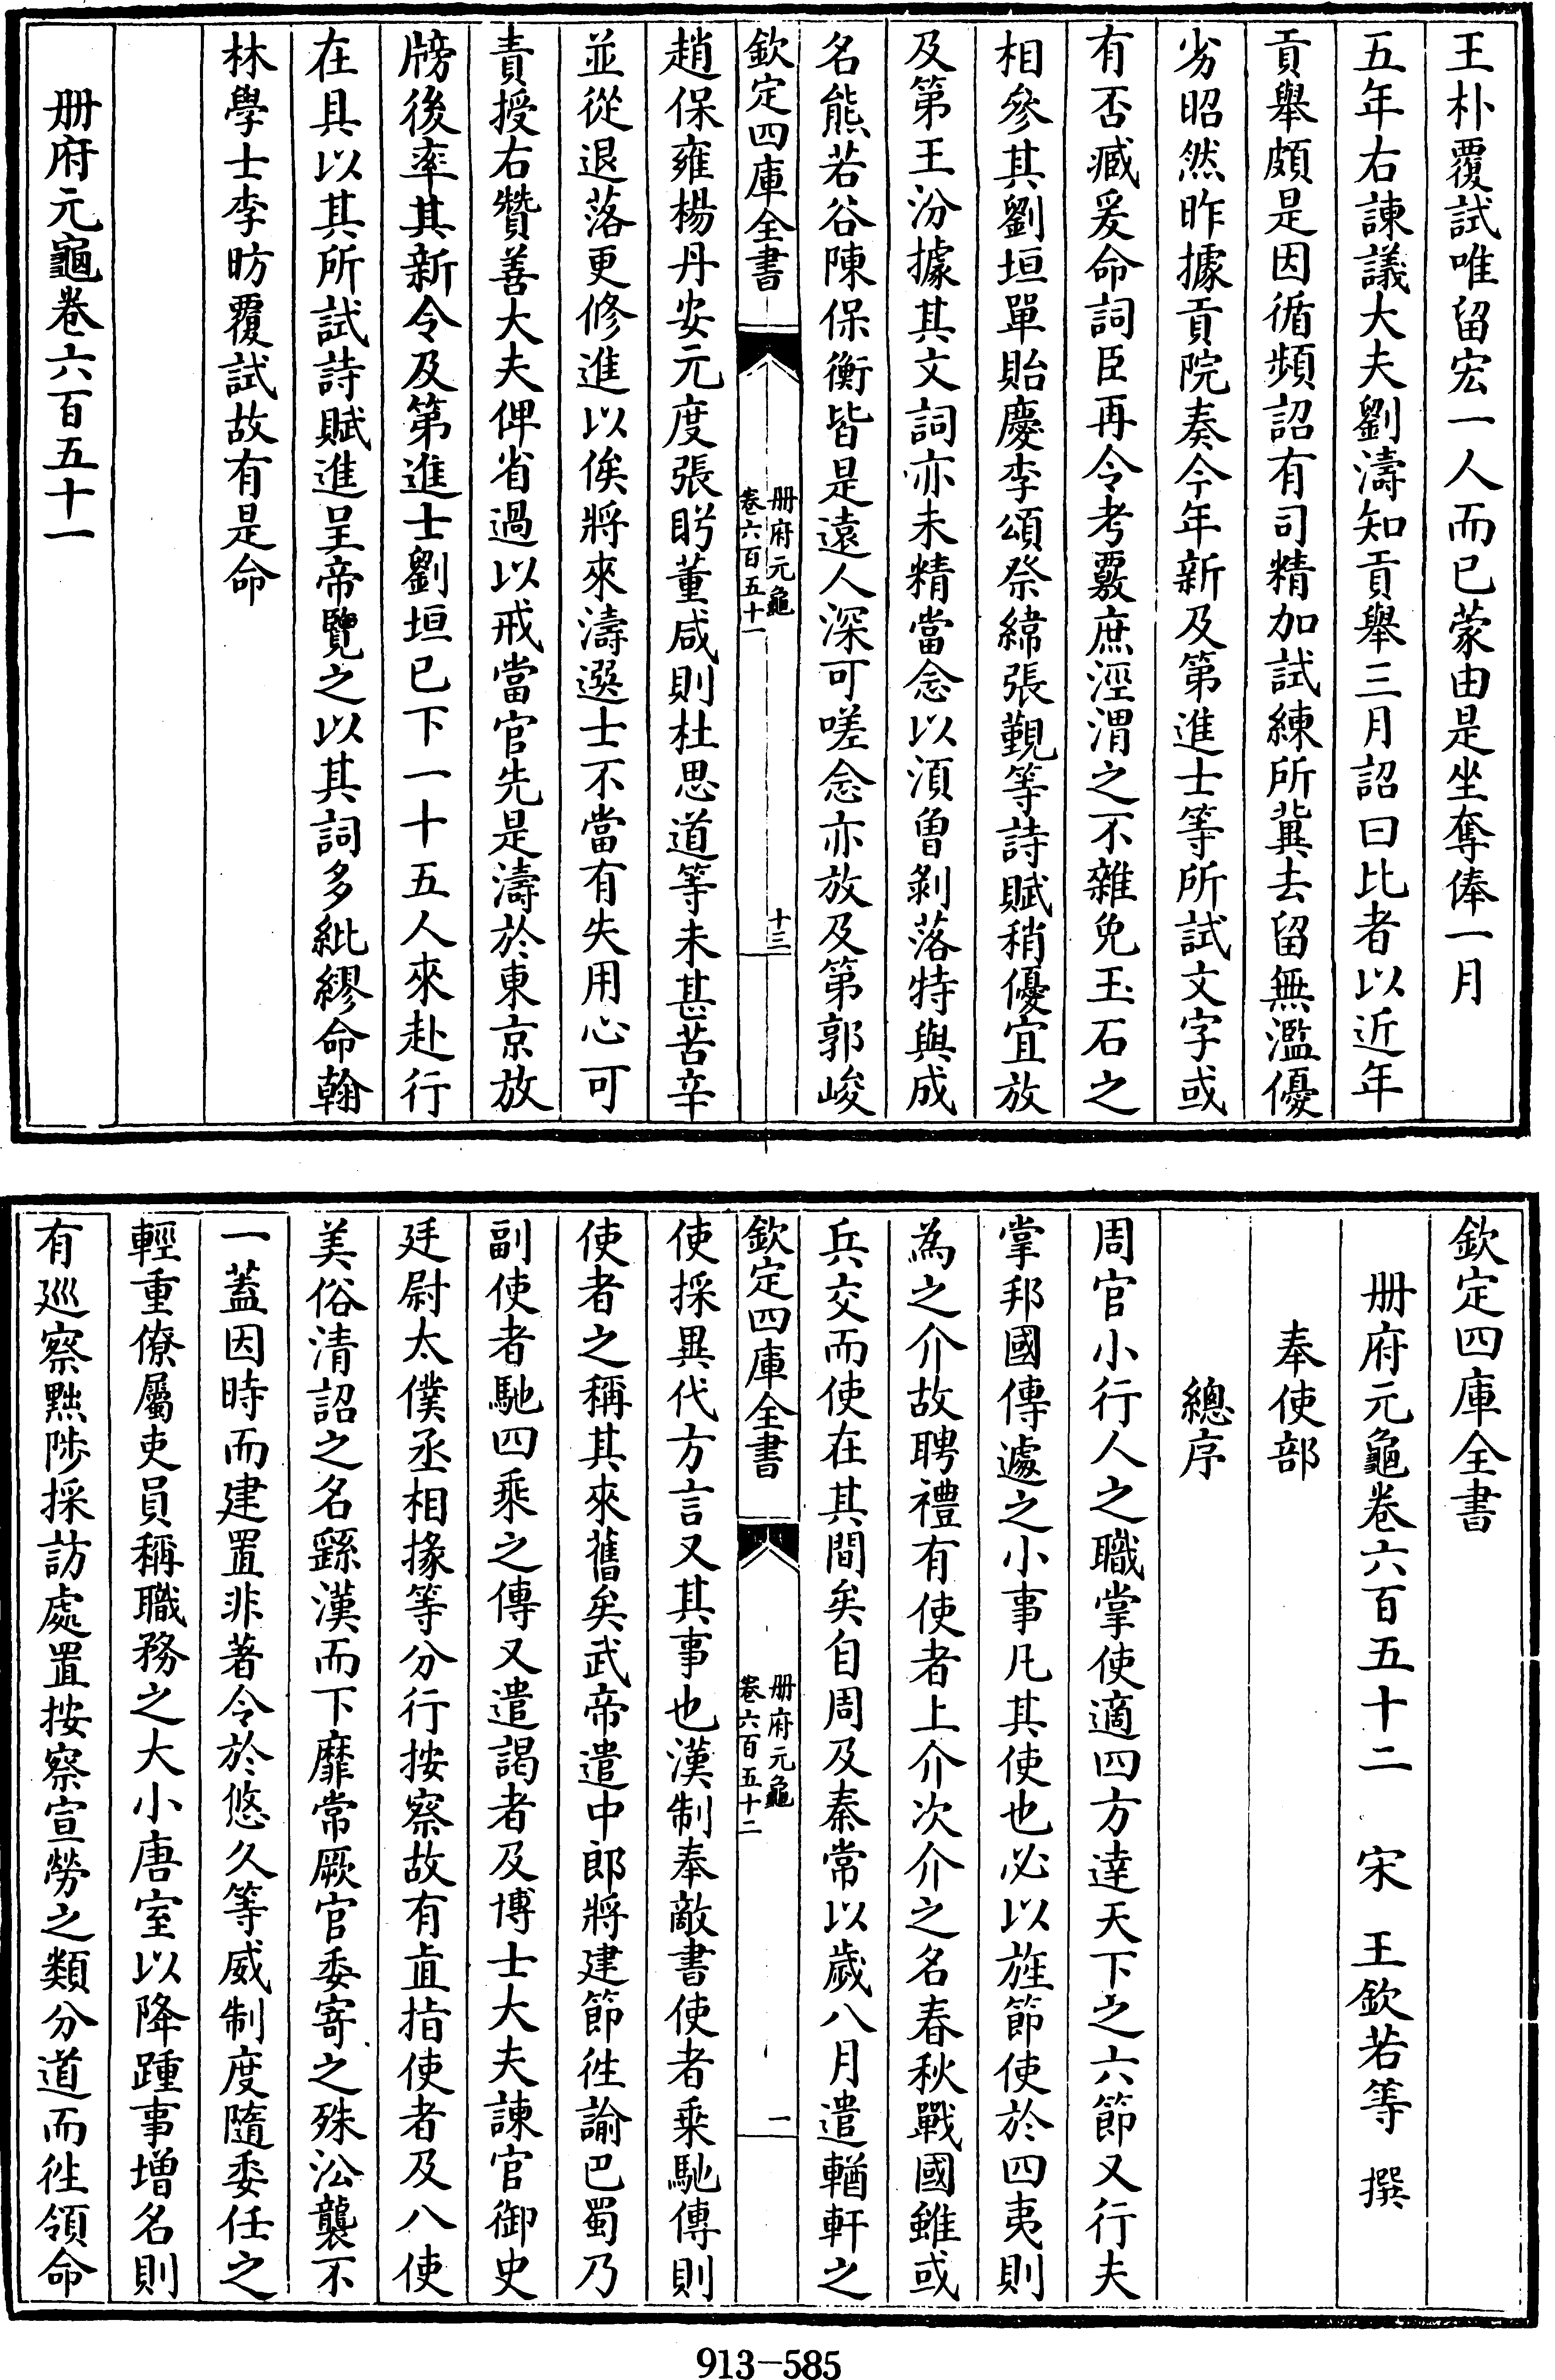 王朴覆試唯留宏一人而已蒙由是坐奪俸一月
五年右諫議大夫劉濤知貢舉三月詔曰比者以近年
貢舉頗是因循頻詔有司精加試練所冀去留無濫優
劣昭然昨據貢院奏今年新及第進士等所試文字或
有否臧爰命詞臣再令考覈庶涇渭之不雜免玉石之
相參其劉垣單貽慶李頌祭緯張覲等詩賦稍優宜放
及第王汾據其文詞亦未精當念以湏曽剝落特與成
名熊若谷陳保衡皆是遠人深可嗟念亦放及第郭峻
欽定四庫全書
冊府元龜
卷六百五十一
十三
趙保雍楊丹安元度張昉董咸則杜思道等未甚苦辛
並從退落更修進以俟將來濤選士不當有失用心可
責授右贊善大夫俾省過以戒當官先是濤於東京放
牓後率其新令及第進士劉垣已下一十五人來赴行
在具以其所試詩賦進呈帝覽之以其詞多紕繆命翰
林學士李昉覆試故有是命
冊府元龜卷六百五十一
欽定四庫全書
冊府元龜卷六百五十二 宋 王欽若等 撰
奉使部
總序
周官小行人之職掌使適四方達天下之六節又行夫
掌邦國傳遽之小事凡其使也必以旌節使於四夷則
為之介故聘禮有使者上介次介之名春秋戰國雖或
兵交而使在其間矣自周及秦常以歲八月遣輶軒之
欽定四庫全書
冊府元龜
卷六百五十二
一
使採異代方言又其事也漢制奉敵書使者乘馳傳則
使者之稱其來舊矣武帝遣中郎將建節徃諭巴蜀乃
副使者馳四乘之傳又遣謁者及博士大夫諫官御史
廷尉太僕丞相掾等分行按察故有直指使者及八使
美俗清詔之名繇漢而下靡常厥官委寄之殊㳂襲不
一蓋因時而建置非著令於悠久等威制度隨委任之
輕重僚屬吏員稱職務之大小唐室以降踵事增名則
有巡察黜陟採訪處置按察宣勞之類分道而徃領命
913—585